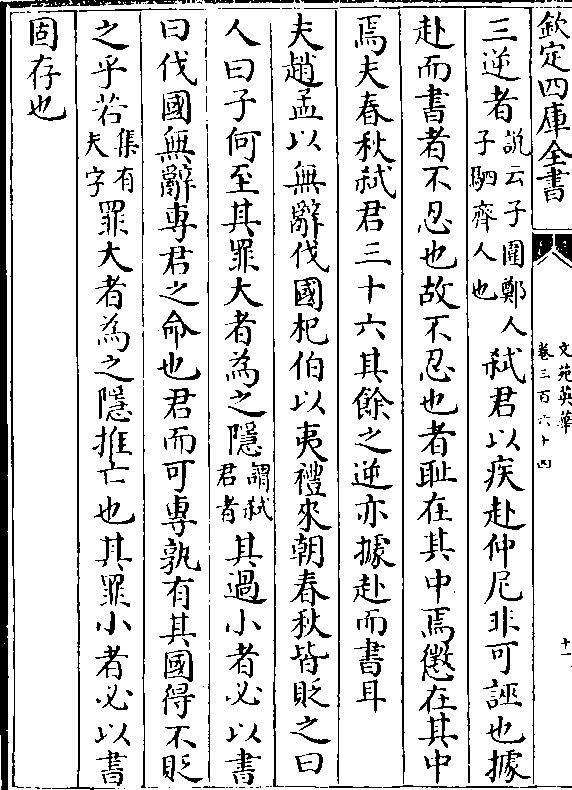 欽定四庫全書
文苑英華
卷三百六十四
十一
三逆者說云子圍鄭人子駟齊人也弑君以疾赴仲尼非可誣也據
赴而書者不忍也故不忍也者耻在其中焉懲在其中
焉夫春秋弑君三十六其餘之逆亦據赴而書耳
夫趙孟以無辭伐國杞伯以夷禮來朝春秋皆貶之曰
人曰子何至其罪大者為之隱謂弑君者其過小者必以書
曰伐國無辭專君之命也君而可專孰有其國得不貶
之乎若集有夫字罪大者為之隱推亡也其罪小者必以書
固存也